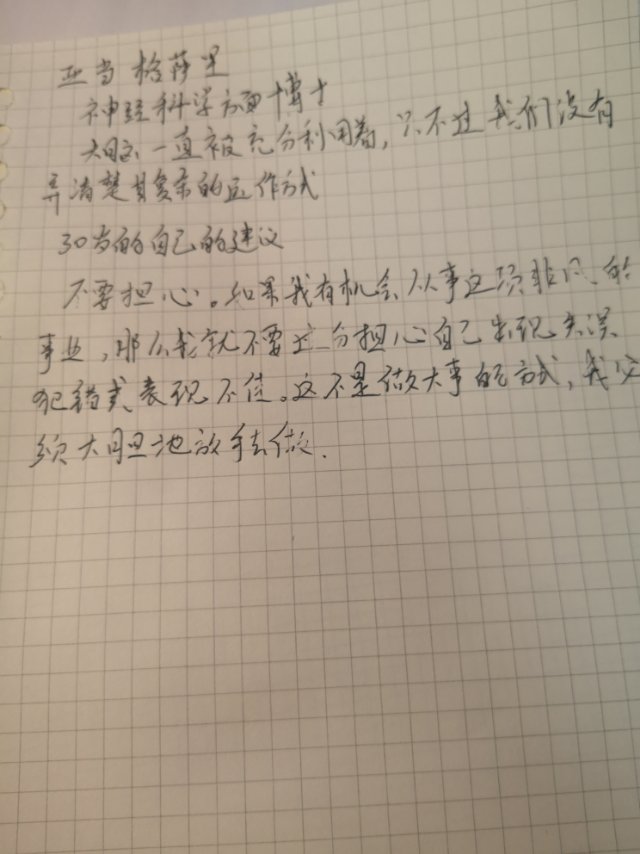 亚当 格萨里
神经科学方面博士
大脑一直被充分利用着，只不过我们没有
弄清楚其复杂的运作方式
30岁的自己的建议
不要担心。如果我有机会从事这项非凡的
事业，那么我就不要过分担心自己出现失误
犯错或表现不佳。这不是做大事的方式，我必
须大胆地放手去做.